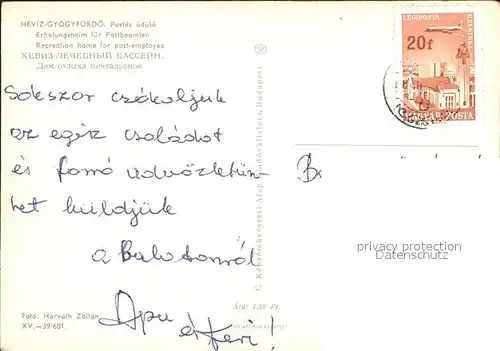 HÉVÍZ-GYÓGYFÜRDŐ. Postás üdülő
Erholungsheim für Postbeamten
Recreation home for post-employee
ХЕВИЗ-ЛЕЧЕБНЫЙ БАССЕЙН.
Дом отдыха почтальонов
Sokszor csókoljuk
az egész családot
és forró üdvözletün-
ket küldjük
a Balatonról
Apu
és Feri!
Foto: Horváth Zoltán
XV.—39/681.
Ára: 1.30 Ft
C. Képzőművészeti Alap Kiadóvállalata, Budapest
LÉGIPOSTA
20f
MAGYAR POSTA
B
privacy protection
Datenschutz